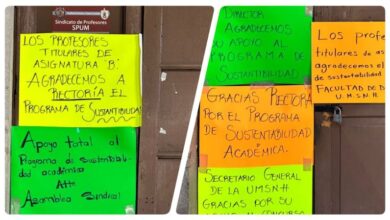 Sindicato de Profesores
SPUM
LOS PROFESORES
TITULARES DE
ASIGNATURA "B".
AGRADECEMOS A
RECTORÍA EL
PROGRAMA DE SUSTENTABILIDAD
Apoyo total al
Programa de sustentabili-
dad académica
Atte
Asamblea Sindical
DIRECTOR
AGRADECEMOS
SU APOYO AL
PROGRAMA DE
SUSTENTABILIDAD
GRACIAS RECTORA
POR EL PROGRAMA
DE SUSTENTABILIDAD
ACADÉMICA.
SECRETARIO GENERAL
DE LA UMSNH
GRACIAS POR SU
Los profe
titulares de as
agradecemos el
de sustentabilidad
FACULTAD DE
U.M.S.N.H